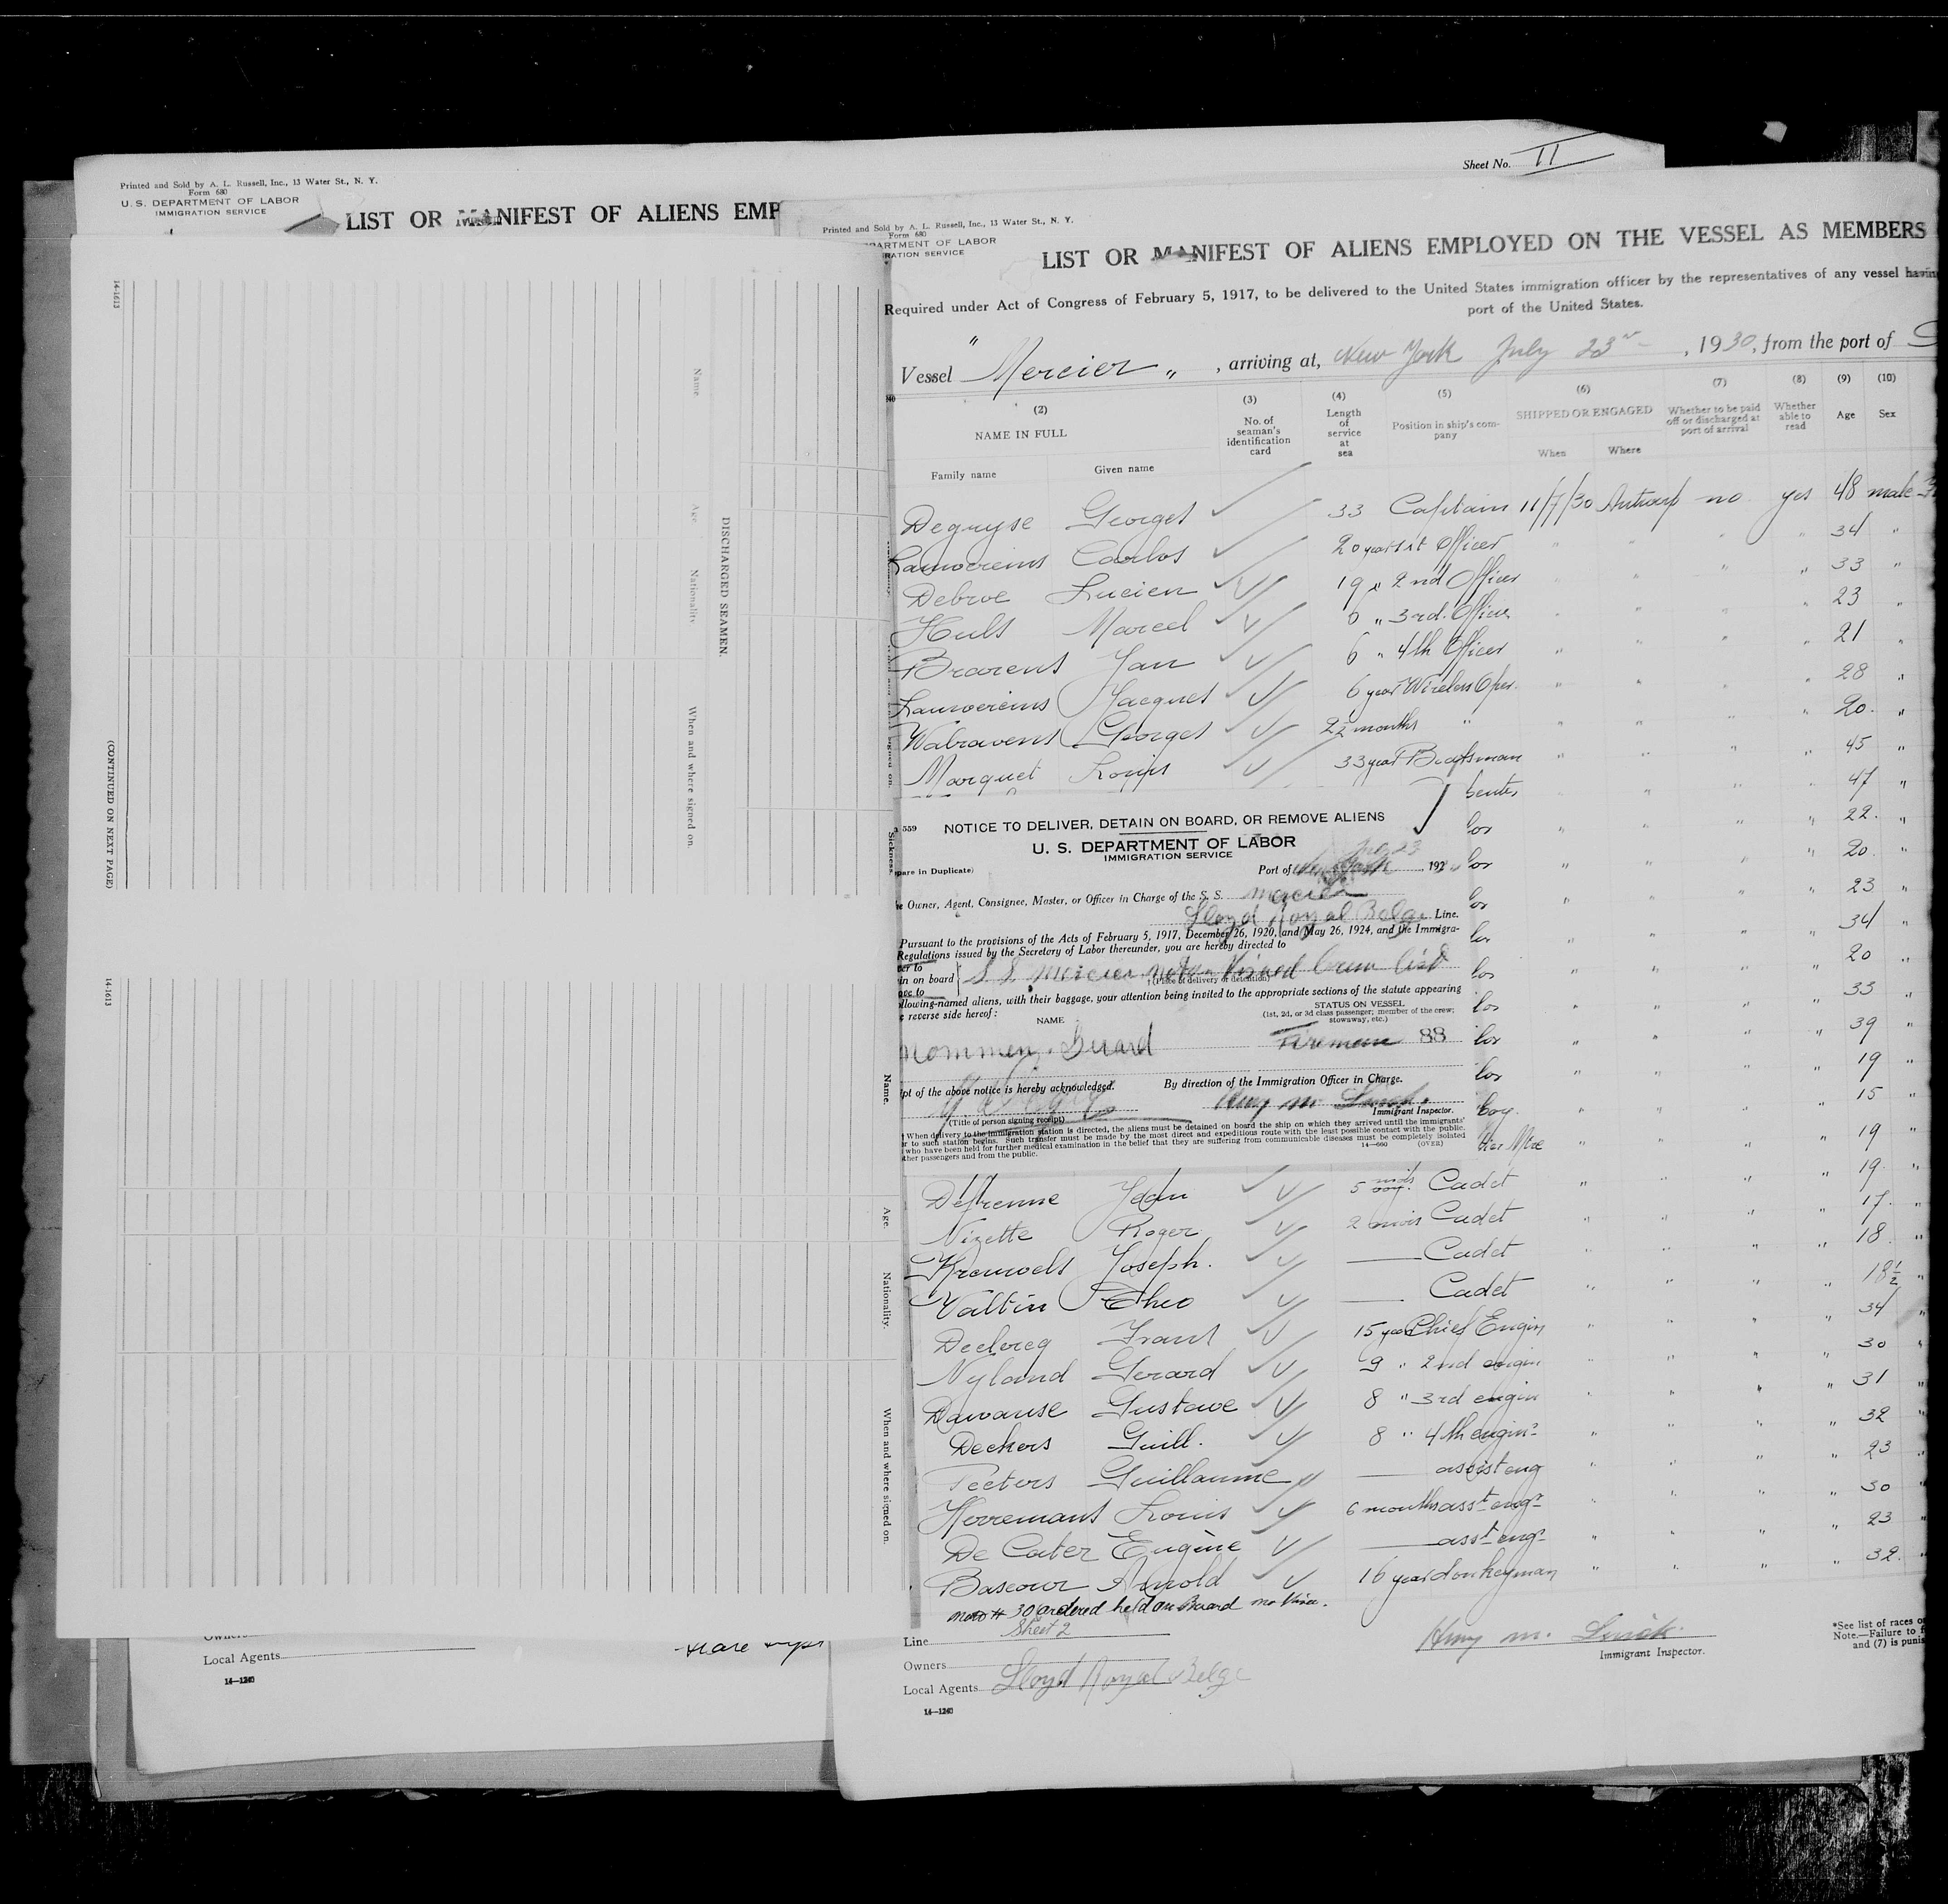 Sheet No. II
Printed and Sold by A. L. Russell, Inc., 13 Water St., N. Y.
Form 680
U. S. DEPARTMENT OF LABOR
IMMIGRATION SERVICE
LIST OR MANIFEST OF ALIENS EMP
14-1613
Name
Age
Nationality
When and where signed on.
DISCHARGED SEAMEN.
(CONTINUED ON NEXT PAGE)
14-1613
Name.
Age.
Nationality.
When and where signed on.
Owners
Local Agents
14—1240
Printed and Sold by A. L. Russell, Inc., 13 Water St., N. Y.
Form 680
PARTMENT OF LABOR
RATION SERVICE
LIST OR MANIFEST OF ALIENS EMPLOYED ON THE VESSEL AS MEMBERS
Required under Act of Congress of February 5, 1917, to be delivered to the United States immigration officer by the representatives of any vessel having
port of the United States.
Vessel "Mercier", arriving at, New York July 23rd, 1930, from the port of
(2) (3) (4) (5) (6) (7) (8) (9) (10)
NAME IN FULL
Family name Given name
No. of seaman's identification card
Length of service at sea
Position in ship's company
SHIPPED OR ENGAGED
When Where
Whether to be paid off or discharged at port of arrival
Whether able to read
Age
Sex
Degryse Georges 33 Captain 11/7/30 Antwerp no yes 48 male
Lauwereins Carlos 20 year 1st Officer " " " " 34 "
Debroe Lucien 19 " 2nd Officer " " " " 33 "
Huls Marcel 6 " 3rd. Officer " " " " 23 "
Brarens Jan 6 " 4th Officer " " " " 21 "
Lauwereins Jacques 6 year Wireless Oper. " " " " 28 "
Walravens Georges 2½ months " " " " " 20 "
Marquet Louis 33 year Boatsman " " " " 45 "
47 "
22 "
20 "
23 "
34 "
20 "
33 "
39 "
19 "
boy 15 "
19 "
559
NOTICE TO DELIVER, DETAIN ON BOARD, OR REMOVE ALIENS
U. S. DEPARTMENT OF LABOR
IMMIGRATION SERVICE
pare in Duplicate)
Port of New York, 192
e Owner, Agent, Consignee, Master, or Officer in Charge of the S. S. Mercier
Lloyd Royal Belge Line.
Pursuant to the provisions of the Acts of February 5, 1917, December 26, 1920, and May 26, 1924, and the Immigra-
Regulations issued by the Secretary of Labor thereunder, you are hereby directed to
ver to
in on board
ove to
S S Mercier not on Visaed Crew list
(Place of delivery or detention)
llowing-named aliens, with their baggage, your attention being invited to the appropriate sections of the statute appearing
e reverse side hereof:
NAME
STATUS ON VESSEL
(1st, 2d, or 3d class passenger; member of the crew;
stowaway, etc.)
Nommen, Girard Fireman 88
ipt of the above notice is hereby acknowledged.
By direction of the Immigration Officer in Charge.
(Title of person signing receipt)
Immigrant Inspector.
When delivery to the immigration station is directed, the aliens must be detained on board the ship on which they arrived until the immigrants'
er to such station begins. Such transfer must be made by the most direct and expeditious route with the least possible contact with the public.
who have been held for further medical examination in the belief that they are suffering from communicable diseases must be completely isolated
ther passengers and from the public.
14—660 (OVER)
Defrenne Jean 5 Cadet " " " " 19 "
Nizette Roger 2 mois Cadet " " " " 17 "
Kreuwels Joseph. — Cadet " " " " 18 "
Valtin Theo — Cadet " " " " 18½ "
Declercq Frans 15 year Chief Engin " " " " 34 "
Nyland Gerard 9 " 2nd engin " " " " 30 "
Dawanse Gustave 8 " 3rd engin " " " " 31 "
Deckers Guill. 8 " 4th engin " " " " 32 "
Peeters Guillaume — assist eng " " " " 23 "
Herremans Louis 6 months asst engr " " " " 30 "
De Cater Eugène — asst engr " " " " 23 "
Bascour Arnold 16 year donkeyman " " " " 32 "
30 ordered held on Board no Visa.
Sheet 2
Line
Owners
Local Agents Lloyd Royal Belge
14—1240
Immigrant Inspector.
*See list of races o
Note.—Failure to f
and (7) is punis